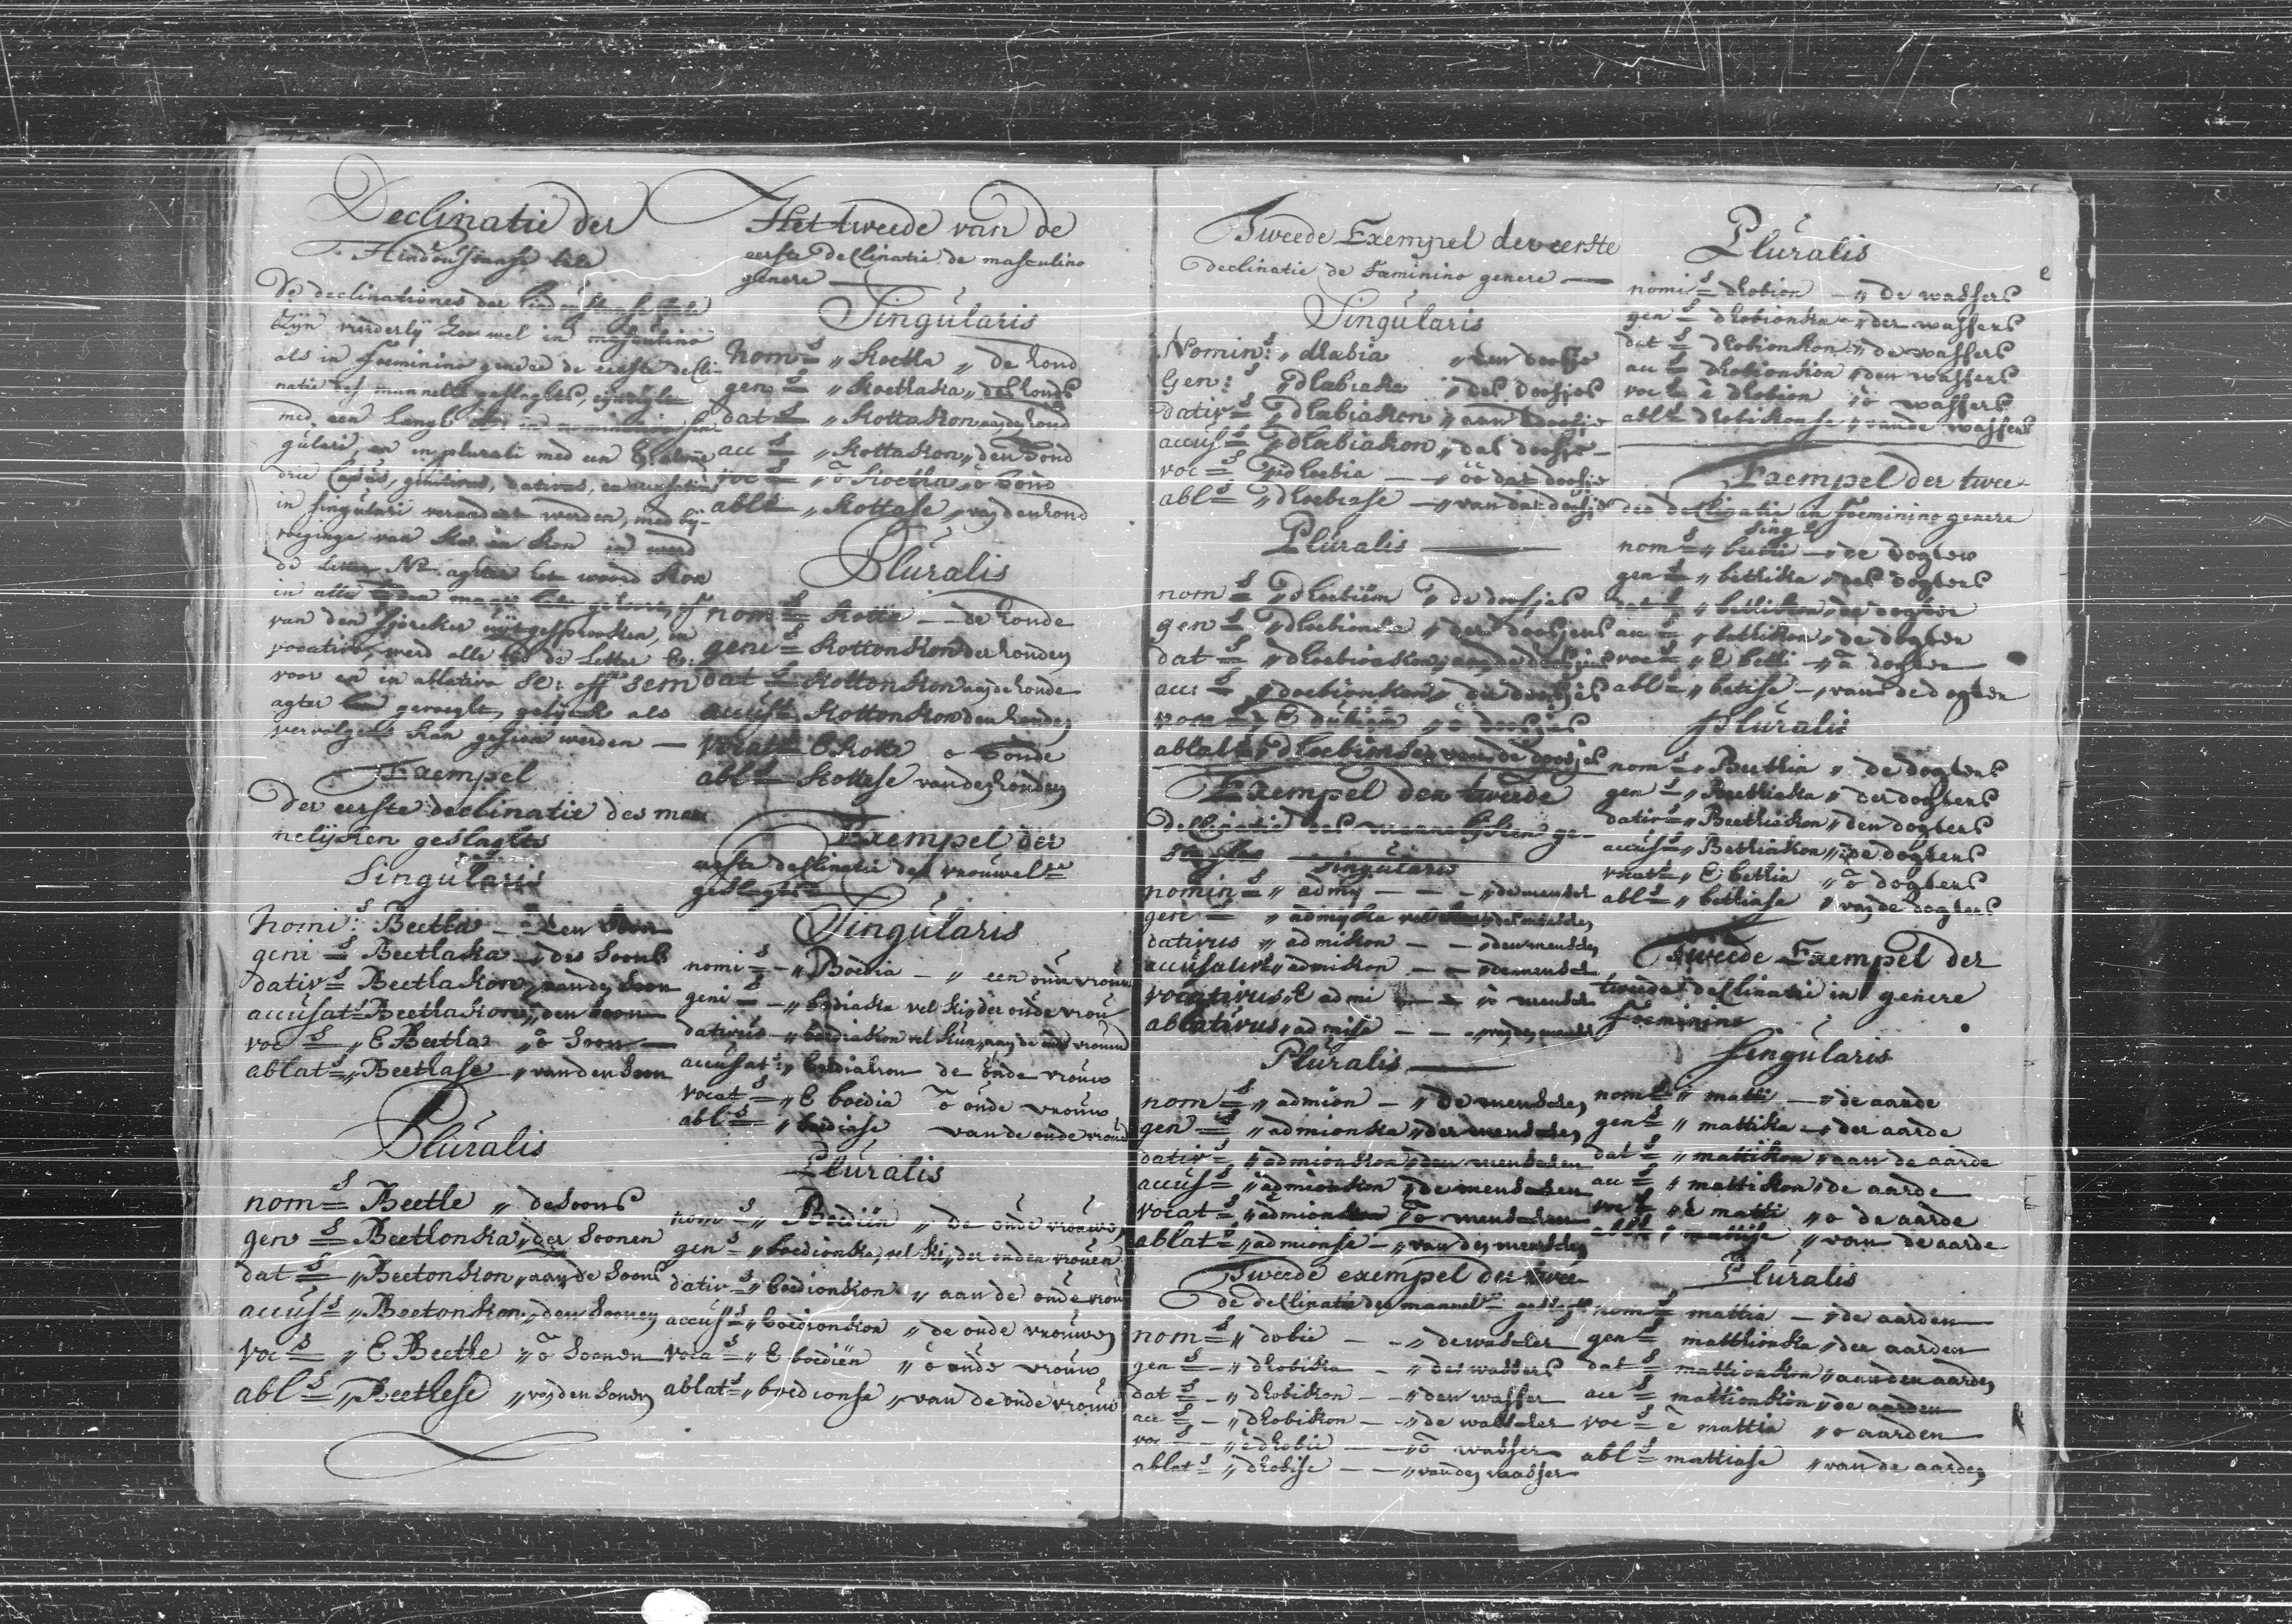 Declinatie der
Hindoustanse tale
De declinationes der hindoustanse tale
zyn vierderlÿ zoo wel in masculino
als in foeminino genere de eerste decli-
natie des mannelt geslaghts, eyndight
med een langh in nominativo sin-
gulari, en in plurali med een E. alwaer
drie Casus, genitivus, dativus, en accusativus
in singulari verandert werden, med bÿ-
voeginge van ka en kon en werd
de letter N. agter het woord kon
in alle
van den spreker uÿtgesprooken, in
vocativo, werd alle de letter E:
voor en in ablativo se: off sem
agter gevoeght, gelÿck als
vervolgens kan gesien werden —
Exempel
der eerste declinatie des man
nelÿcken geslaghts
Singularis
nomi:s Beetha — den soon
geni s Beethaka „ des soons
dativ s Beethakon „ aan den soon
accusat s Beethakon „ den soon
voc s „ E Beetha „ o soon
ablat s „ Beethase „ van den soon
Pluralis
nom s Beethe „ de soons
gen s Beethonka „ der soonen
dat s „ Beetonkon „ aan de soons
accus s „ Beetonkon „ den soonen
voc s „ E Beethe „ o soonen
abl s „ Beethese „ van den soonen
Het tweede van de
eerste declinatie de masculino
genere —
Singularis
nom s „ koetta „ de hond
gen s „ koettaka „ des honds
dat s „ kottakon aan den hond
acc s „ kottakon „ den hond
voc s „ o koetta „ o hond
abl s „ kottase „ van den hond
Pluralis
nom s kotte — de honde
geni s kottonkon der honden
dat s kottonkon aan de honde
accus s kottonkon den honden
vocat s E kotte o honde
abl s kottese van den honden
Exempel der
eerste declinatie des vrouwel
geslaghts
Singularis
nomi s — „ Boedia — „ een oude vrouw
geni s — „ boediaka vel ki „ der oude vrou
dativus — „ boediakon vel kun „ aan de oude vrouw
accusat s „ boediakon de oude vrouw
vocat s — „ E boedia o oude vrouw
abl s — „ boediase van de oude vrouw
Pluralis
nom s „ Boediën „ de oude vrouwen
gen s „ boedionka, vel ki „ der ouden vrouen
dativ s „ boedionkon „ aan de oude vrou
accus s „ boedionkon „ de oude vrouwen
voca s „ E boediën „ o oude vrouw
ablat s „ boedionse „ van de oude vrouw
Tweede Exempel der eerste
declinatie de Fæminino genere —
Singularis
Nomin:s „ dhæbia „ den doosje
Gen:s „ dhæbiaka „ des doosjes
dativ s „ dhæbiakon „ aan doosje
accus s „ dhæbiakon „ das doosje —
voc s „ dhoebia — „ oo dat doosje
abl s „ dhoebiase — „ van dat doosje
Pluralis —
nom s „ dhoebiem „ de doosjes
gen s „ dhoebionka „ der doosjens
dat s „ dhoebionkon „ aan de doosjes
acc: s „ doebionkon „ die doosjes
voca s „ E dubiem „ o doosjes
ablat s „ dhoebionse „ van de doosjes
Exempel den tweede
declinatie des mannelÿken ge-
Singularis
nomin s „ admy — — „ de mensch
gen s „ admyka vel „ des menschen
dativus „ admikon — — „ den menschen
accusativus „ admikon — — „ den mensch
vocativus „ E admi — — „ o mensch
ablativus „ admise — — „ van den mensch
Pluralis —
nom s „ admion — „ de menschen
gen s „ admionka „ der menschen
dativ s „ admionkon „ den menschen
accus s „ admionkon „ de menschen
vocat s „ admion „ o menschen
ablat s „ admionse — „ van den menschen
Tweede exempel der twee
de declinatie des mannel geslaght
nom s „ dobie — — „ de wascher
gen s — „ dhobika — „ des wassers
dat s — „ dhobikon — — „ den wasser
acc s — „ dhobikon — — „ de wascher
voc s — „ e dhobie — — „ o wasser
ablat s „ dhobise — — „ van den wasser
Pluralis
nomi s dhobion — „ de wassers
gen s dhobionka — „ der wassers
dat s dhobionkon „ de wassers
acc s dhobionkon „ den wassers
voc s e dhobion „ o wassers
abl s dhobikonse „ van de wassers
Exempel der twee
den declinatie in foeminino genere
Sing s
nom s „ betti — „ de dogter
gen s „ bethika „ des dogters
dat s „ bethikon „ de dogter
acc s „ bethikon „ de dogter
voc s „ E betti — „ o dogter
abl s „ betise — „ van de dogter
Pluralis
nom s „ Beethia „ de dogters
gen s „ Beethiaka „ der dogters
dativ s „ Beethiakon „ den dogters
accus s „ Bethiakon „ de dogters
vocat s „ E bethia „ o dogters
abl s „ bethiase „ van de dogters
Tweede Exempel der
tweede declinatie in genere
foeminino
Singularis
nom s „ matti — „ de aarde
gen s „ mattika — „ der aarde
dat s „ mattikon „ aan de aarde
acc s „ mattikon „ de aarde
voc s „ e matti „ o de aarde
abl s „ mattise „ van de aarde
Pluralis
nom s mattia — „ de aarden
gen s matthionka „ der aarden
dat s mattionkon „ aan den aarden
acc s mattionkon „ de aarden
voc s e mattia „ o aarden
abl s mattiase „ van de aarden